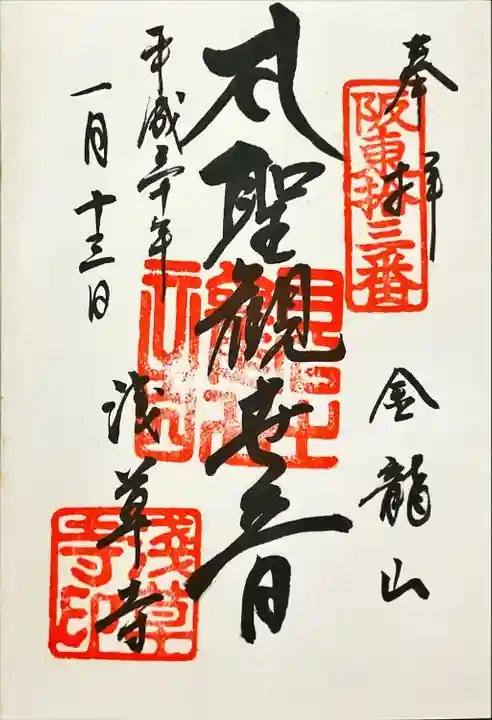 奉拝
阪東拾三番
金龍山
聖觀世音
平成三十年
一月十三日
浅草寺
淺草寺印